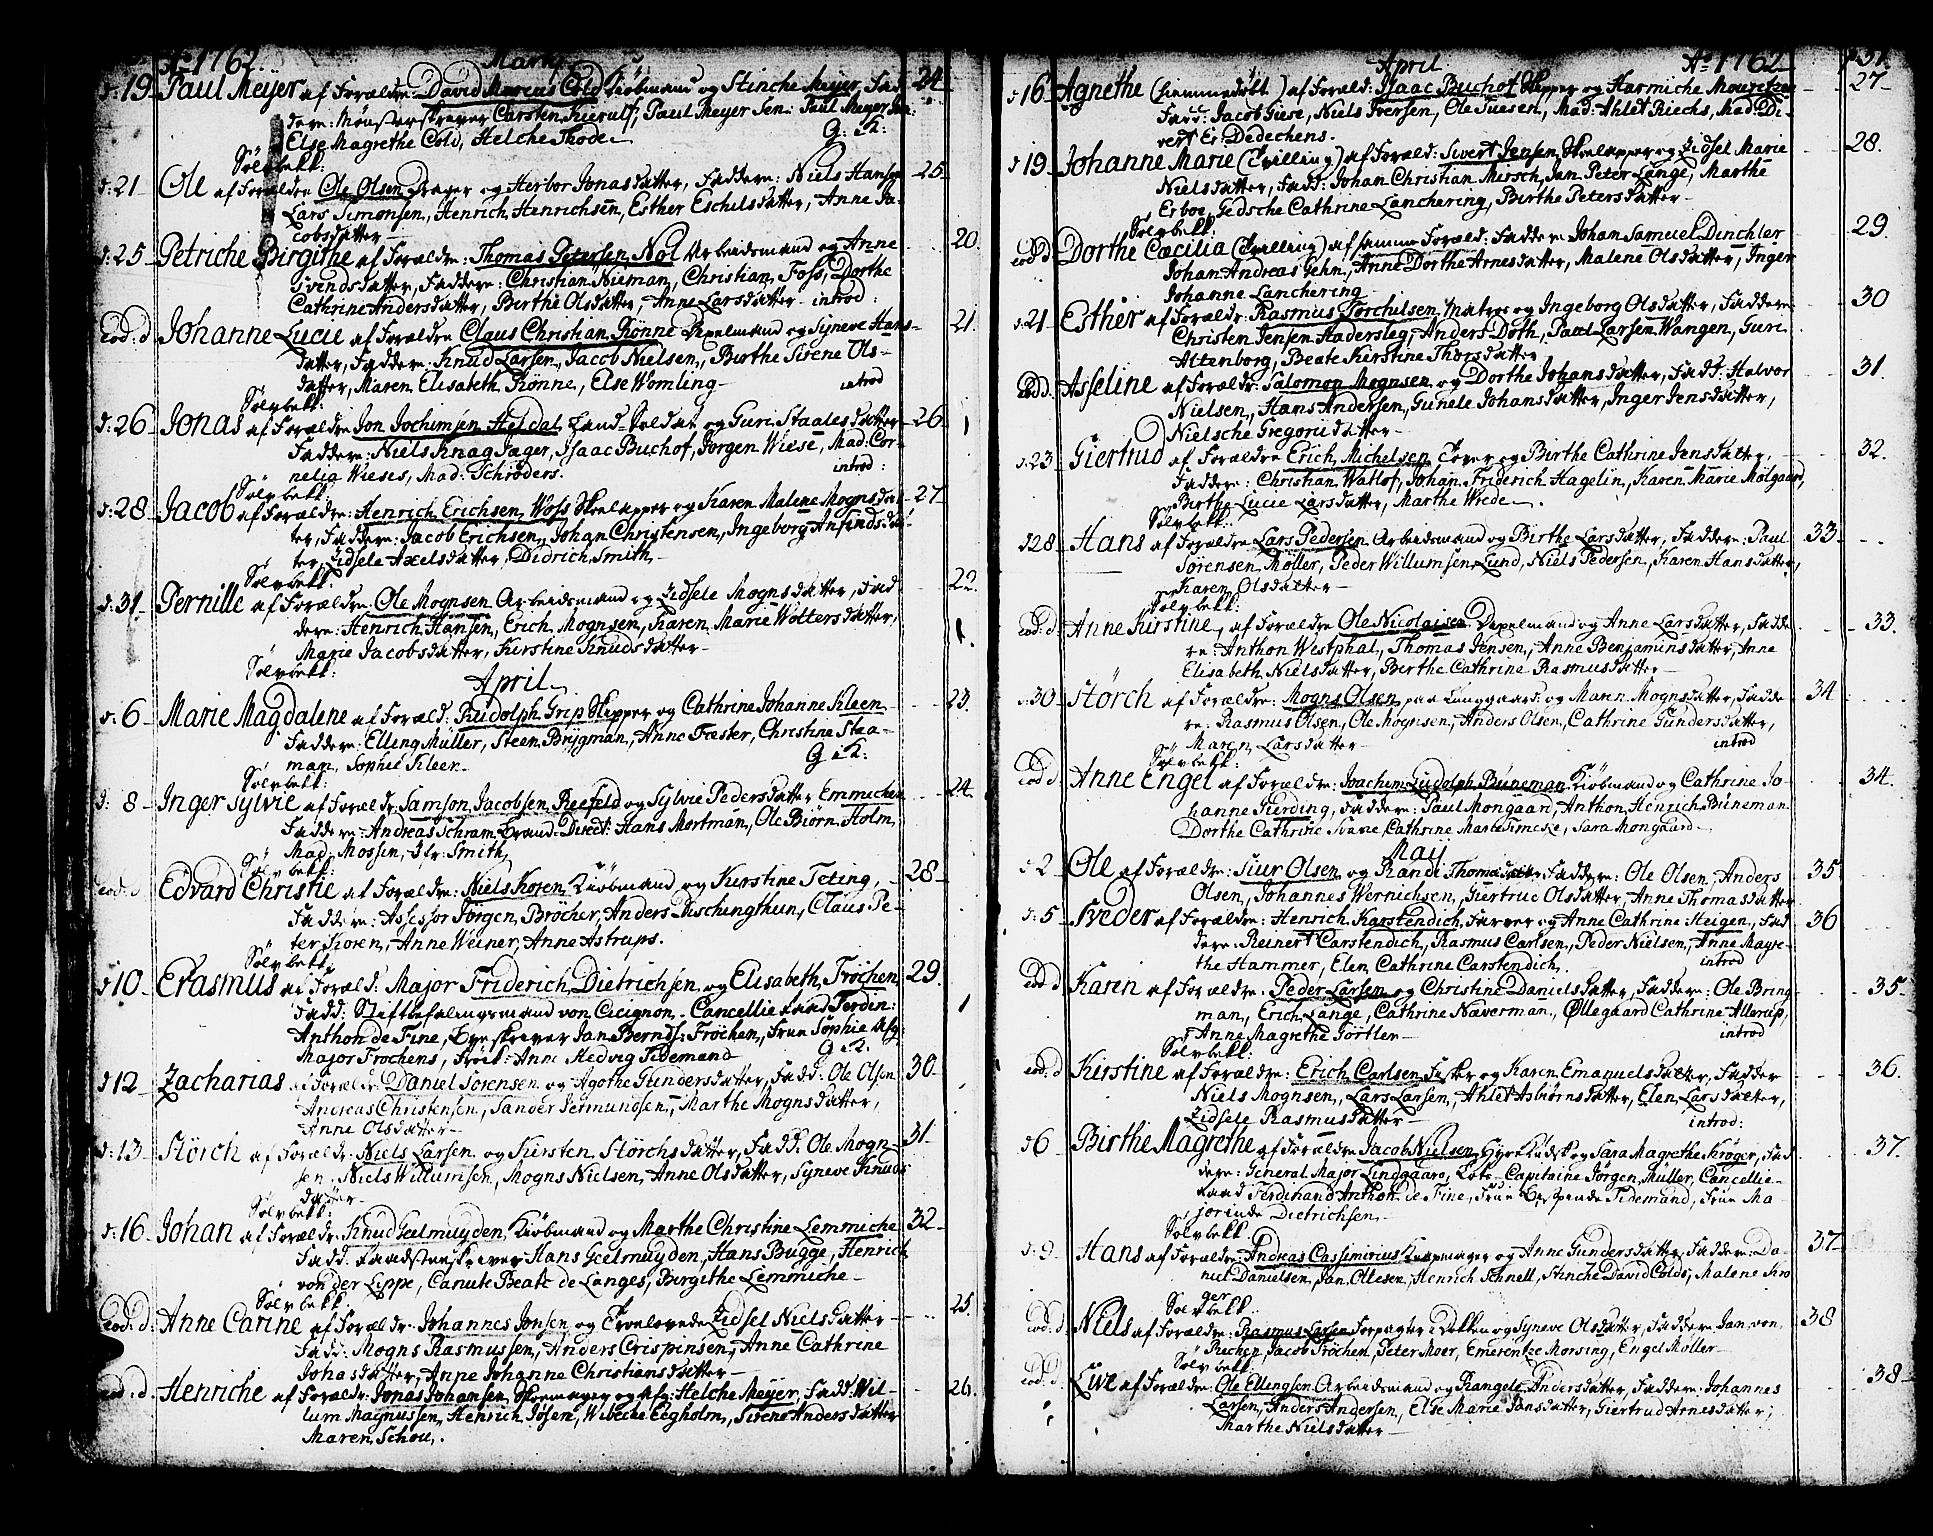 Ao 1762. Martij
d: 19 Paul Meyer af Forældre: David Marcus Cold Kiøbmand og Stinche Meyer, Fad- 24
dere: Mønsterskrever Carsten Kierulf, Paul Meyer Sen: Paul Meyer Jun:
Else Magrethe Cold, Helche Thode G: K:
Sølvbekk:
d: 21 Ole af Forældre Ole Olsen Drager og Herbor Jonasdatter, Faddere: Niels Hansen 25
Lars Simonsen, Henrich Henrichsen, Esther Eschelsdatter, Anne Ja-
cobsdatter
d: 25 Petriche Birgithe af Forældre: Thomas Petersen Nol Arbeidsmand og Anne 20.
Svindsdatter, Faddere: Christian Nieman, Christian Foss, Dorthe
Cathrine Andersdatter, Birthe Olsdatter, Anne Larsdatter introd:
Eod: d Johanne Lucie af Forældre Claus Christian Rønne Dregelmand og Syneve Hans- 21.
datter, Faddere: Knud Larsen, Jacob Nielsen, Birthe Sirene Ols-
datter, Maren Elisabeth Rønne, Else Womling introd
Sølvbekk:
d: 26 Jonas af Forældre Jon Jochimsen Heldal Land-Soldat og Guri Staalesdatter 26
Faddere: Niels Knag Jæger, Isaac Buchof, Jørgen Wiese, Mad: Cor-
nelia Wieses, Mad. Schrøders. introd:
Sølvbekk:
d: 28 Jacob af Forældre: Henrich Erichsen Woss Skoelapper og Karen Malene Mognsdat- 27
ter, Faddere: Jacob Erichsen, Johan Christensen, Ingeborg Anfindsdat-
ter, Zidsele Axelsdatter, Didrich Smith
Sølvbekk:
d: 31 Pernille af Forældre: Ole Mognsen Arbeidsmand og Zidsele Mognsdatter, Fad- 22.
dere: Henrich Hansen, Erich Mognsen, Karen Marie Woltersdatter,
Marie Jacobsdatter, Kirstine Knudsdatter
Sølvbekk:
April
d: 6 Marie Magdalene af Foræld: Rudolph Grip Skipper og Cathrine Johanne Kleen 23.
Faddere: Elling Müller, Steen Brygman, Anne Fæster, Christine Staa-
man, Sophie Kleen G: K:
Sølvbekk:
d: 8 Inger Sylvie af Forældr: Samson Jacobsen Reefeld og Sylvie Pedersdatter Emmichen 24.
Faddere: Andreas Schram Brand-Direct: Hans Mortman, Ole Biørn Holm,
Mad: Mossen, Mad: Smith
Sølvbekk:
eod: d Edvard Christie af Forældre: Niels Koren Kiøbmand og Kirstine Teting, 28
Faddere: Assessor Jørgen Brøcher, Anders Dischingthun, Claus Pe-
ter Koren, Anne Weiner, Anne Astrups.
Sølvbekk:
d 10 Erasmus af Foræld: Major Friderich Dietrichsen og Elisabeth Frøchen 29.
Fadd: Stiftbefalingsmand von Cicignon, Cancellieraad Ferdin:
Anthon de Fine, Byeskrever Jan Berndt: Frøchen, Frue Sophie Afg:
Major Frochens, Frøik: Anne Hedvig Tidemand G: K.
d 12 Zacharias af Forældre Daniel Sørensen og Agothe Gundersdatter, Fadd: Ole Olsen 30
Andreas Christensen, Sander Sermundsen, Marthe Mognsdatter,
Anne Olsdatter
d: 13 Störch af Forældr: Niels Larsen og Kirsten Störchsdatter, Fadd: Ole Mogn- 31
sen, Niels Willumsen, Mogns Nielsen, Anne Olsdatter, Syneve Knuds
datter
Sølvbekk:
d: 16 Johan af Forældr: Knud Geelmuyden, Kiøbmand og Marthe Christine Lemmiche 32
Fadd: Raadstueskrever Hans Geelmuyden, Hans Bugge, Henrich
von der Lippe, Canute Beate de Langes, Birgithe Lemmiche
Sølvbekk:
Eod: d: Anne Carine af Forældr: Johannes Jonsen og Troelovede Zidsel Nielsdatter 25.
Fadd: Mogns Rasmussen, Anders Crispinsen, Anne Cathrine
Johasdatter, Anne Johanne Christiansdatter
eod: d Henriche af Forældr: Jonas Johansen Skoemager og Afg: Helche Meyer, Fadd: Wil- 26.
lum Magnussen, Henrich Josen, Wibeche Eegholm, Sirene Andersdatter
Maren Schou,.
April Ao 1762 31.
d 16 Agnethe (hiemmedøbt) af Foræld: Isaac Buchof Skipper og Harmiche Mouritzen 27
Fadd: Jacob Giese, Niels Iversen, Ole Tuesen, Mad: Ahlet Riechs, Mad: Di-
vert Er: Dedechens.
d 19 Johanne Marie (Tvilling) af Foræld: Sivert Jensen Skoelapper og Zidsel Marie 28.
Nielsdatter, Fadd: Johan Christian Mirsch, Jan Peter Lange, Marthe
Erboe, Gedsche Cathrine Lanchering, Birthe Petersdatter
Sølvbekk:
eod d Dorthe Cæcilia (Tvilling) af samme Foræld: Faddere: Johan Samuel Dinchler 29.
Johan Andreas Gehn, Anne Dorthe Arnesdatter, Malene Olsdatter, Inger
Johanne Lanchering
d. 21 Esther af Forældr: Rasmus Torchilsen Matros og Ingeborg Olsdatter, Faddere 30
Christen Jensen Hadersleg, Anders Doth, Paul Larsen Wangen, Guri
Altenborg, Beate Kirstine Thorsdatter
Eod d. Asseline af Forældr: Salomon Mognsen og Dorthe Johansdatter, Fadd: Halvor 31.
Nielsen, Hans Andersen, Gunele Johansdatter, Inger Jensdatter,
Nielsche Gregorii datter
d. 23 Giertrud af Forældre Erich Michelsen Tover og Birthe Cathrine Jensdatter, 32.
Faddere: Christian Watlof, Johan Friderich Hagelin, Karen Marie Mølgaard,
Birthe Lucie Larsdatter, Marthe Wrede
Sølvbekk:
d 28 Hans af Forældre Lars Pedersen Arbeidsmand og Birthe Larsdatter, Faddere: Paul 33
Sørensen Møller, Peder Willumsen Lund, Niels Pedersen, Karen Hansdatter,
Karen Olsdatter
Sølvbekk:
eod: d Anne Kirstine, af Forældre Ole Nicolaisen Dregelmand og Anne Larsdatter, Fadde 33.
re: Anthon Westphal, Thomas Jensen, Anne Benjaminsdatter, Anne
Elisabeth Nielsdatter, Birthe Cathrine Rasmusdatter
d: 30 Störch af Forældre: Mogns Olsen paa Lunggaard og Maren Mognsdatter, Fadde 34
re: Rasmus Olsen, Ole Mognsen, Anders Olsen, Cathrine Gundersdatter,
Maren Larsdatter introd
Sølvbekk:
eod: d Anne Engel af Forældre: Joachim Ludolph Büneman Kiøbmand og Cathrine Jo- 34.
hanne Fierding, Faddere: Paul Mongaard, Anthon Henrich Büneman
Dorthe Cathrine, Cathrine Marte, Sara Mongaard
May
d 2 Ole af Forældre: Siur Olsen og Randi Thomasdatter Faddere: Ole Olsen, Anders 35
Olsen, Johannes Wernichsen, Giertrue Olsdatter, Anne Thomasdatter
d: 5 Peder af Forældre: Henrich Karstendich, Farver og Anne Cathrine Heigen, Fad 36
dere: Reinert Carstendich, Rasmus Carlsen, Peder Nielsen, Anne Magre-
the Hammer, Elen Cathrine Carstendich. introd
eod d Karen af Forældre: Peder Larsen og Christine Danielsdatter, Faddere: Ole Bring 35.
man, Erich Lange, Cathrine Næverman, Øllegaard Cathrine Allerup,
Anne Magrethe Görtler introd
Sølvbekk:
eod: d Kirstine af Forældre: Erich Carlsen Fisker og Karen Emanuelsdatter, Fadder 36.
Niels Mognsen, Lars Larsen, Ahlet Asbiørnsdatter, Elen Larsdatter,
Zidsele Rasmusdatter introd:
d 6 Birthe Magrethe af Forældre Jacob Nielsen Hyre Kudsk og Sara Magrethe Krøger, Fad 37.
dere: General Major Lindgaare, Capitaine Jørgen Müller, Cancellie-
raad Ferdinand Anthon de Fine, Frue Tidemand, Frue Ma-
jorinde Dietrichsen,
Sølvbekk
d: 9 Hans af Forældre: Andreas Cassimirius Knapmager og Anne Gundersdatter, Faddere: Da- 37
niel Danielsen, Jan Olesen, Henrich Schnell, Stinche David Colds, Malene Krø
ger
Sølvbekk:
eod: d Niels af Forældre: Rasmus Larsen Forpagter i Dokken og Syneve Olsdatter, Faddere: Jan von 38
Ruchen, Jacob Frøchen, Peter Moer, Emerentze Morsing, Engel Møller
Sølvbekk:
eod: d. Live af Forældre: Ole Ellingsen Arbeidsmand og Rangele Andersdatter, Faddere: Johannes 38
Larsen, Anders Andersen, Else Marie Jansdatter, Giertrud Arnesdatter,
Marthe Nielsdatter